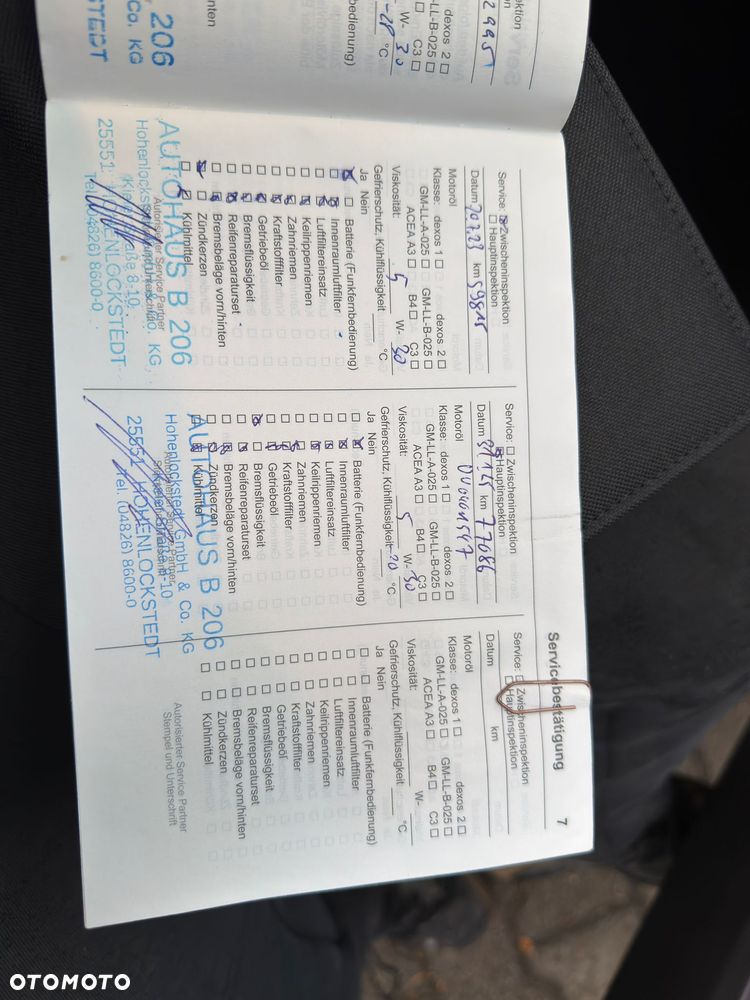 Servicebestätigung 7
Service: Zwischeninspektion
Hauptinspektion
Datum 20.7.23 km 59815
Motoröl
Klasse: dexos 1 dexos 2
GM-LL-A-025 GM-LL-B-025
ACEA A3 B4 C3
Viskosität: 5 W- 30
Gefrierschutz, Kühlflüssigkeit °C
Ja Nein
Batterie (Funkfernbedienung)
Innenraumluftfilter
Luftfiltereinsatz
Keilrippenriemen
Zahnriemen
Kraftstofffilter
Getriebeöl
Bremsflüssigkeit
Reifenreparaturset
Bremsbeläge vorn/hinten
Zündkerzen
Kühlmittel
AUTOHAUS B 206
Autorisierter Service Partner
25551 HOHENLOCKSTEDT
Tel. (04826) 8600-0
Service: Zwischeninspektion
Hauptinspektion
Datum km 77086
Motoröl OV0901547
Klasse: dexos 1 dexos 2
GM-LL-A-025 GM-LL-B-025
ACEA A3 B4 C3
Viskosität: 5 W- 30
Gefrierschutz, Kühlflüssigkeit -20 °C
Ja Nein
Batterie (Funkfernbedienung)
Innenraumluftfilter
Luftfiltereinsatz
Keilrippenriemen
Zahnriemen
Kraftstofffilter
Getriebeöl
Bremsflüssigkeit
Reifenreparaturset
Bremsbeläge vorn/hinten
Zündkerzen
Kühlmittel
AUTOHAUS B 206
Hohenlockstedt GmbH & Co. KG
Autorisierter Service Partner
25551 HOHENLOCKSTEDT
Tel. (04826) 8600-0
Service: Zwischeninspektion
Hauptinspektion
Datum km
Motoröl
Klasse: dexos 1 dexos 2
GM-LL-A-025 GM-LL-B-025
ACEA A3 B4 C3
Viskosität: W-
Gefrierschutz, Kühlflüssigkeit °C
Ja Nein
Batterie (Funkfernbedienung)
Innenraumluftfilter
Luftfiltereinsatz
Keilrippenriemen
Zahnriemen
Kraftstofffilter
Getriebeöl
Bremsflüssigkeit
Reifenreparaturset
Bremsbeläge vorn/hinten
Zündkerzen
Kühlmittel
Autorisierter Service Partner
Stempel und Unterschrift
dexos 2
GM-LL-B-025
C3
W- 30
°C
bedienung)
206
Co. KG
STEDT
OTOMOTO